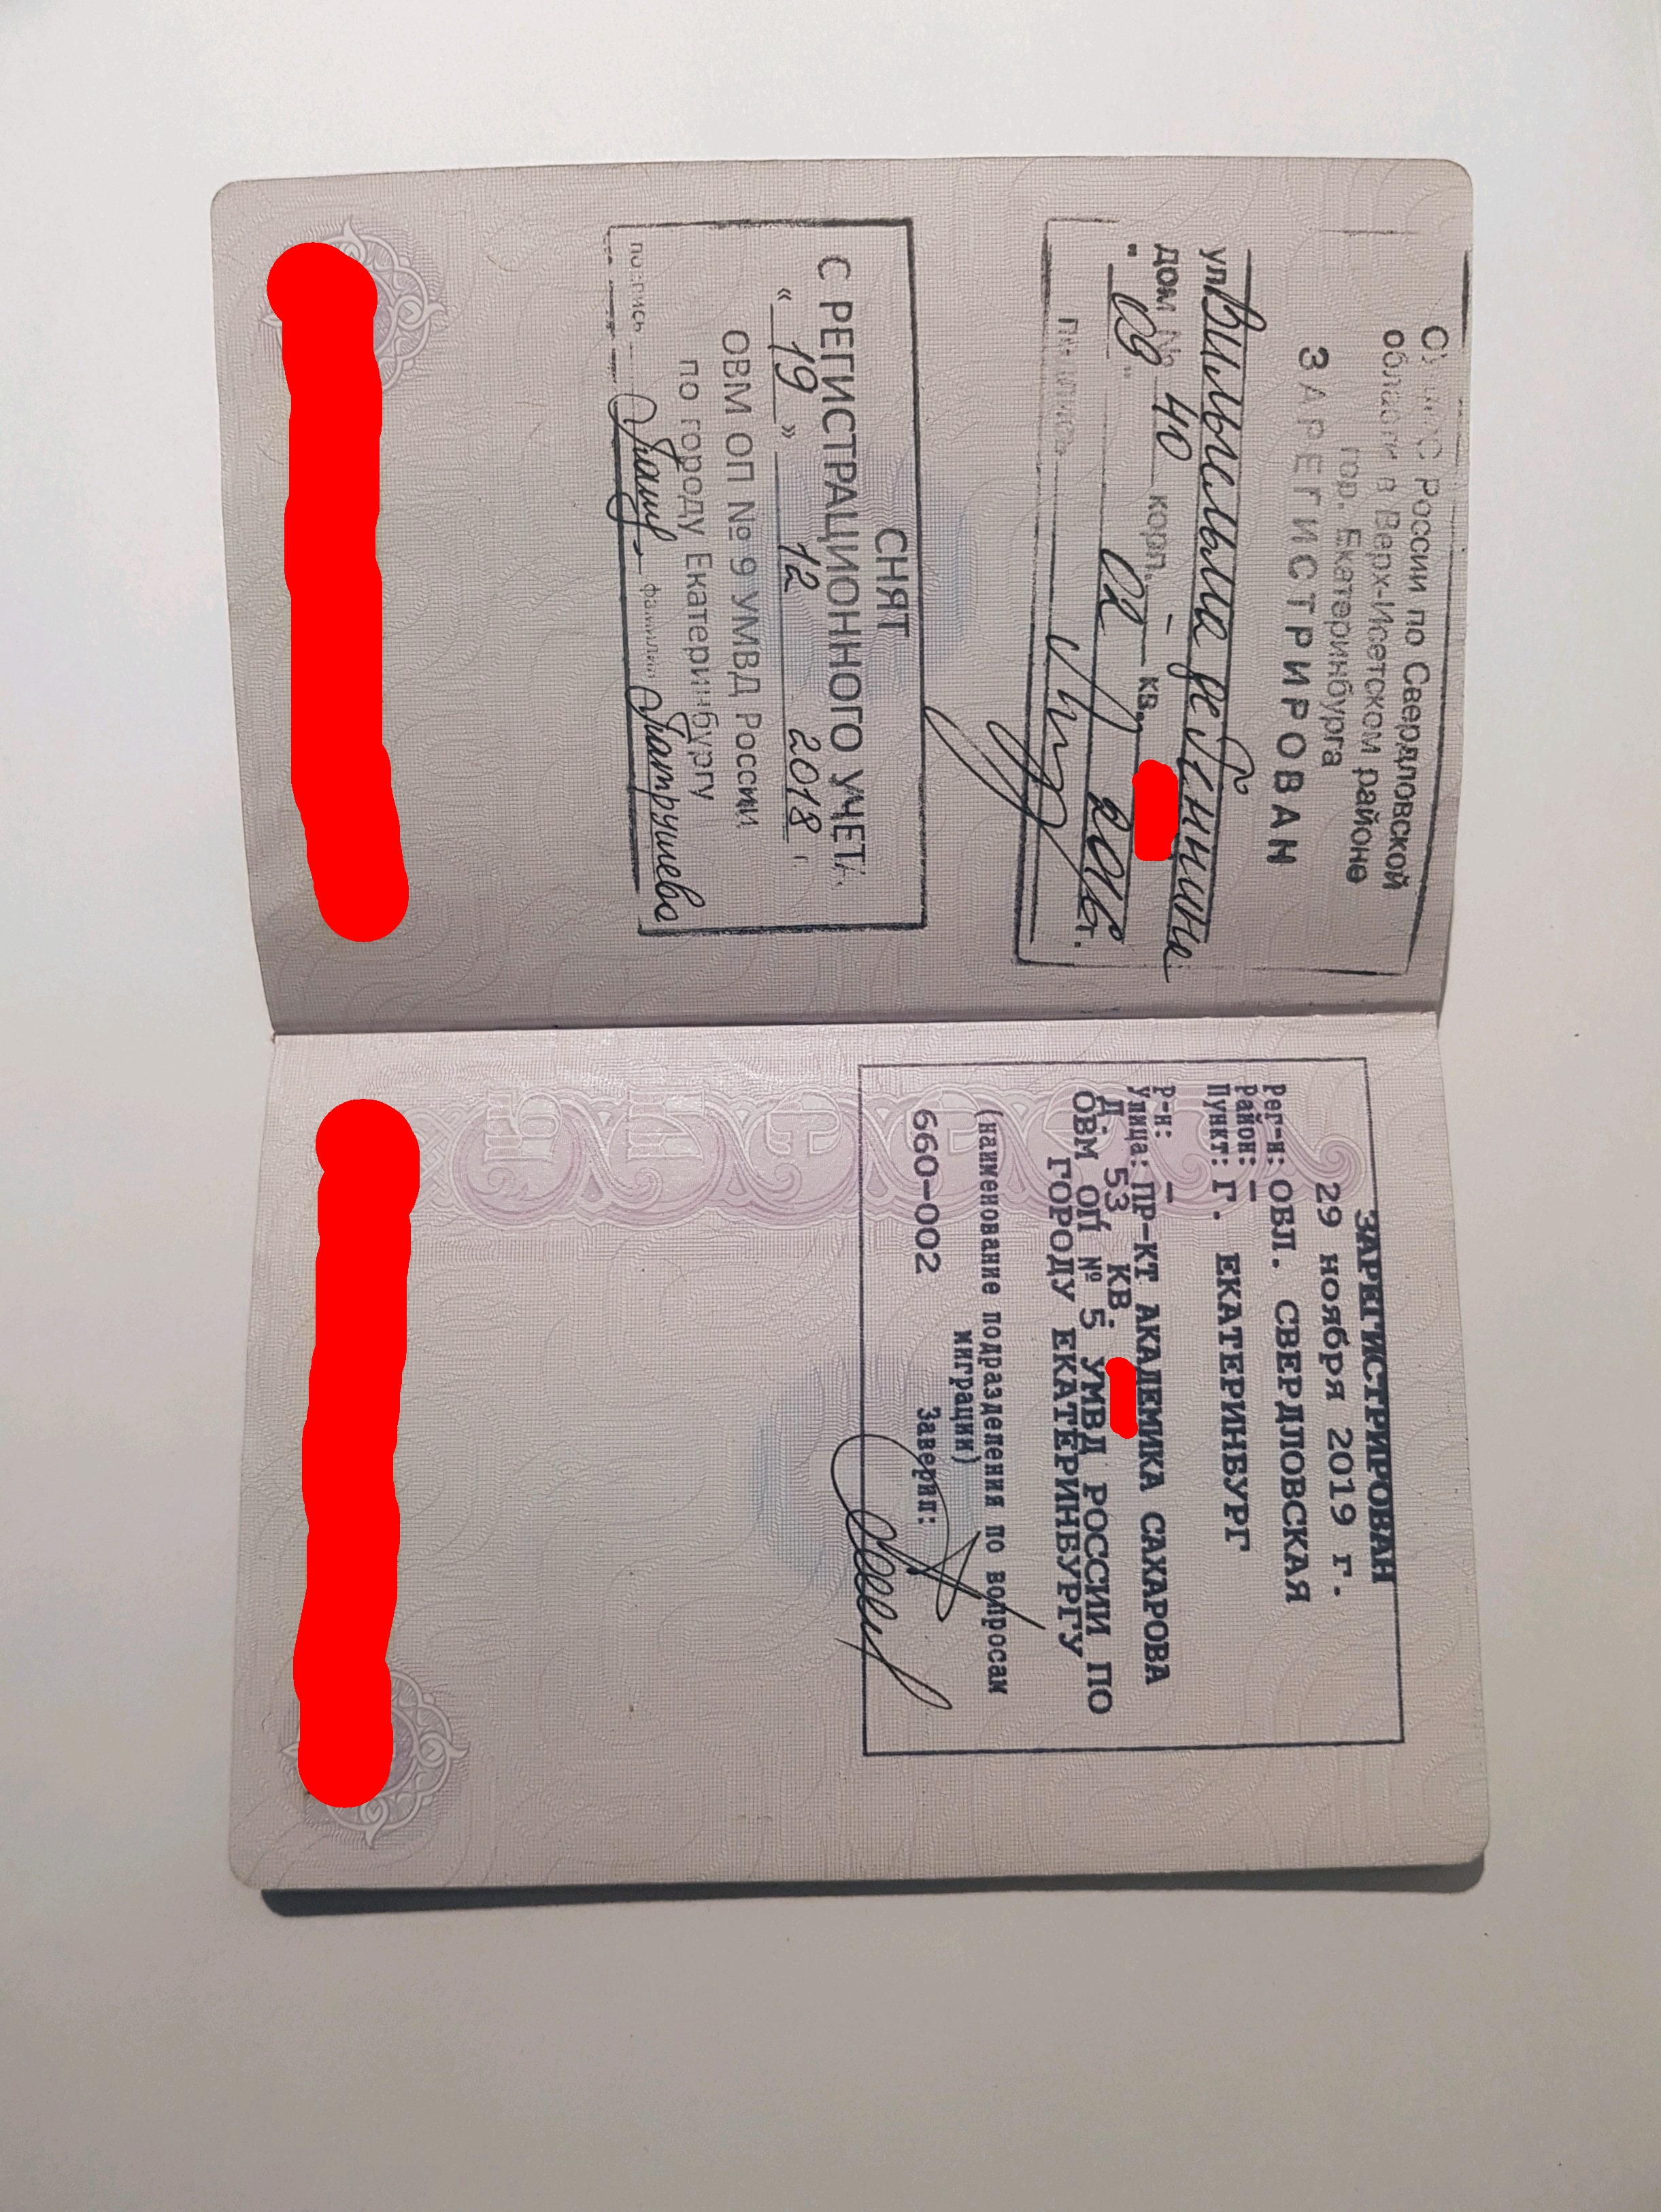 ОУФМС России по Свердловской
области в Верх-Исетском районе
гор. Екатеринбурга
ЗАРЕГИСТРИРОВАН
ул. Вильгельма де Геннина
дом № 40 корп. – кв.
"09" 02 2016 г.
Подпись
СНЯТ
С РЕГИСТРАЦИОННОГО УЧЕТА
«19» 12 2018 г.
ОВМ ОП № 9 УМВД России
по городу Екатеринбургу
подпись фамилия Патрушева
ЗАРЕГИСТРИРОВАН
29 ноября 2019 г.
Рег-н: ОБЛ. СВЕРДЛОВСКАЯ
Район: –
Пункт: Г. ЕКАТЕРИНБУРГ
Р-н: –
Улица: ПР-КТ АКАДЕМИКА САХАРОВА
Д. 53, КВ.
ОВМ ОП № 5 УМВД РОССИИ ПО
ГОРОДУ ЕКАТЕРИНБУРГУ
(наименование подразделения по вопросам
миграции)
660-002 Заверил: